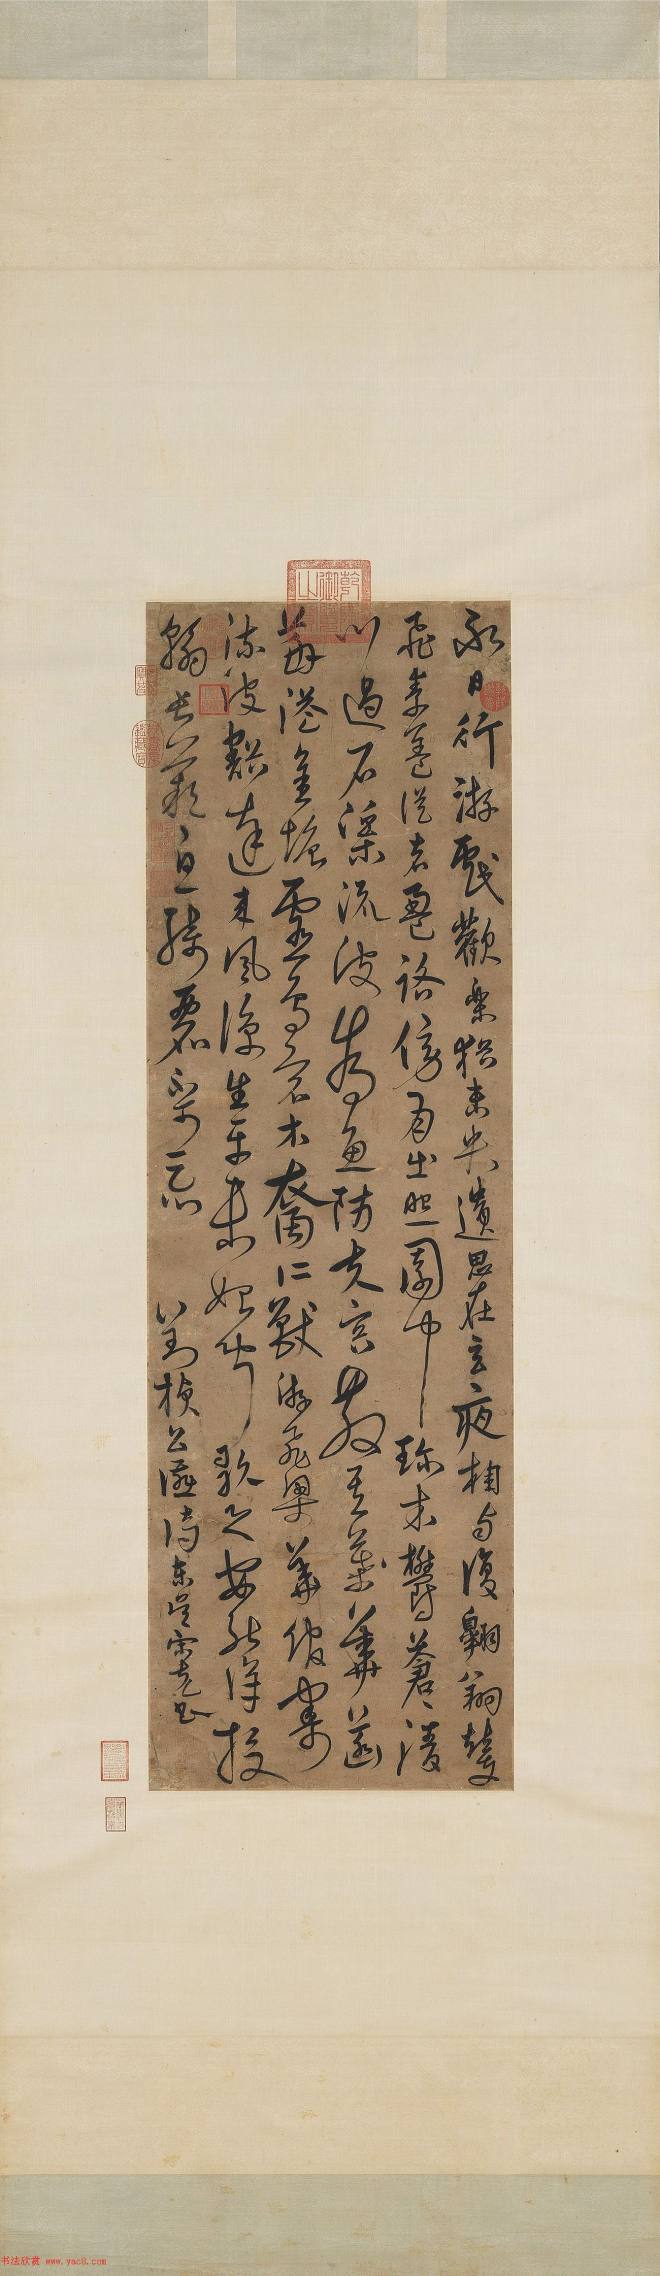 永日行游戲歡樂猶未央遺思在玄夜相與復翱翔輦
車飛素蓋從者盈路傍月出照園中珍木鬱蒼蒼清
川過石渠流波為魚防芙蓉散其華菡
萏溢金塘靈鳥宿水裔仁獸游飛梁華館寄
流波豁達來風涼生平未始聞歌之安能詳投
翰長歎息綺麗不可忘 公讌詩東吳宋克書
乾隆御覽之寶
书法欣赏 www.yac8.com